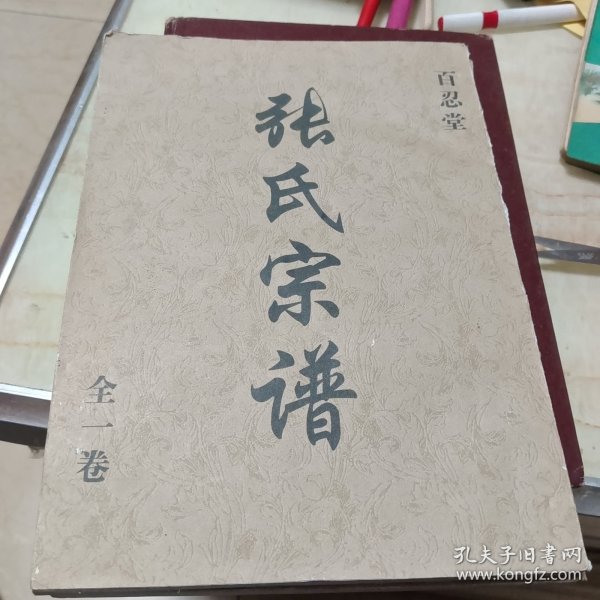 百忍堂
张氏宗谱
全一卷
孔夫子旧书网
www.kongfz.com